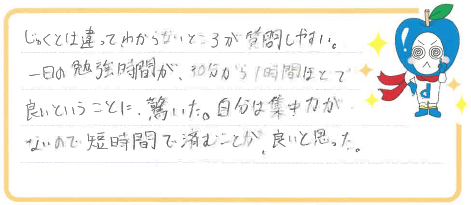 じゅくとは違ってわからないところが質問しやすい。
一日の勉強時間が、30分から1時間ほどで
良いということに、驚いた。自分は集中力が
ないので短時間で済むことが、良いと思った。
d